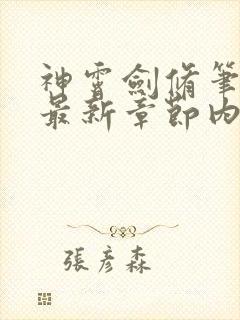 神霄劍脩筆
最新章節內
張彥森